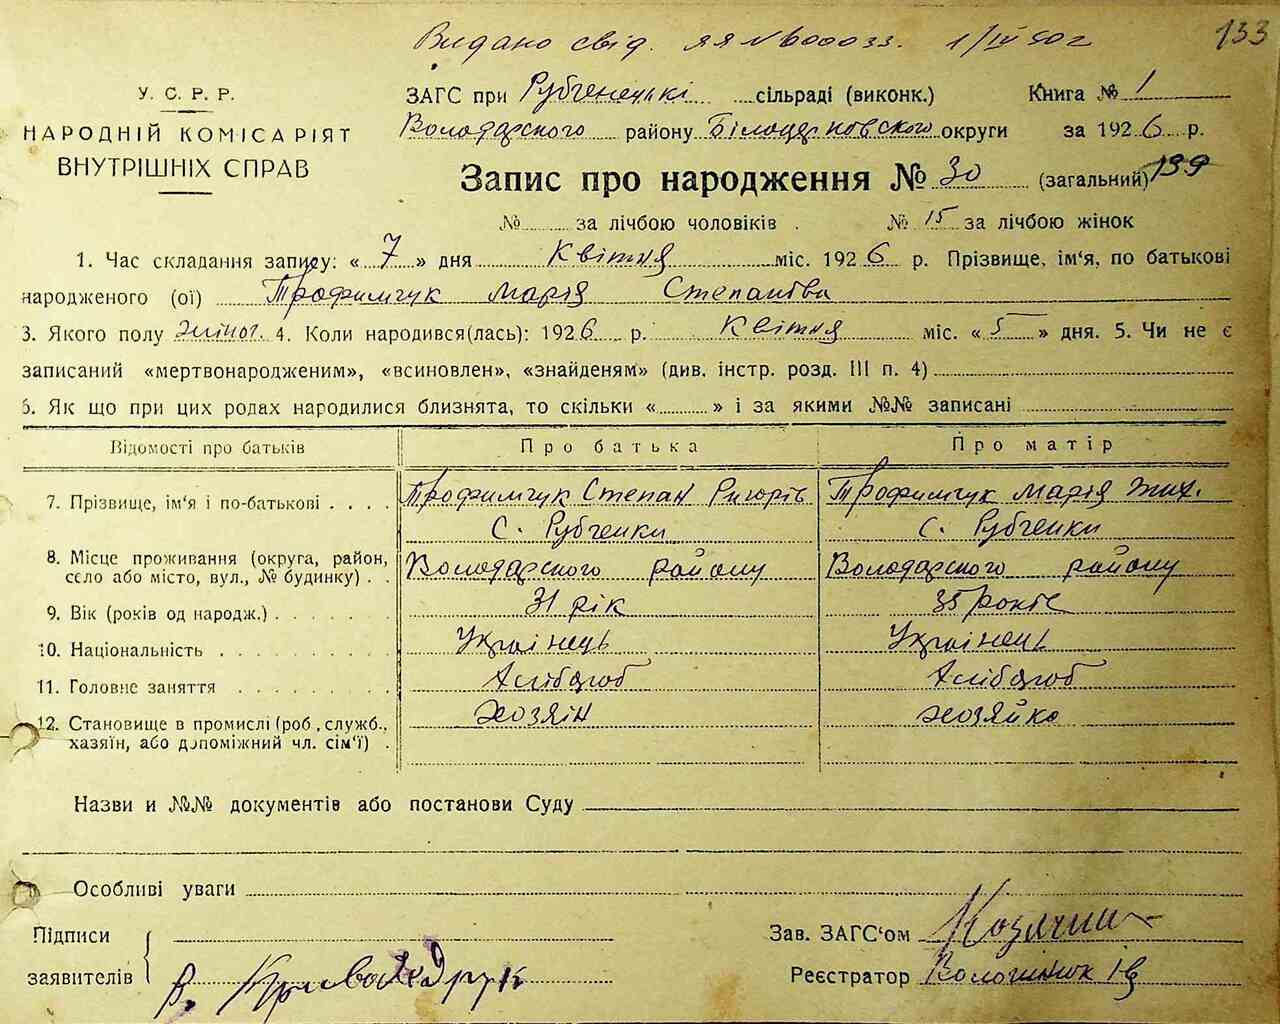 Видано свід. ЯЯ № 600033. 1/IV 50 г 133
У. С. Р. Р.
НАРОДНІЙ КОМІСАРІЯТ
ВНУТРІШНІХ СПРАВ
ЗАГС при Рубченецькі сільраді (виконк.) Книга № 1
Володарского району Білоцерковского округи за 1926 р.
Запис про народження № 30 (загальний) 139
№ за лічбою чоловіків. № 15 за лічбою жінок
1. Час складання запису: « 7 » дня Квітня міс. 1926 р. Прізвище, ім'я, по батькові
народженого (ої) Трофимчук Марія Степанівна
3. Якого полу жіног. 4. Коли народився(лась): 1926 р. Квітня міс. « 5 » дня. 5. Чи не є
записаний «мертвонародженим», «всиновлен», «знайденям» (див. інстр. розд. III п. 4)
6. Як що при цих родах народилися близнята, то скільки « » і за якими №№ записані
Відомості про батьків Про батька Про матір
7. Прізвище, ім'я і по-батькові . . . . Трофимчук Степан Ригорів Трофимчук Марія
с. Рубченки с. Рубченки
8. Місце проживання (округа, район, село або місто, вул., № будинку) . . Володарского району Володарского району
9. Вік (років од народж.) . . . . . . . 31 рік 35 років
10. Національність . . . . . . . . . . Украінець Украінець
11. Головне заняття . . . . . . . . . Хлібороб Хлібороб
12. Становище в промислі (роб., служб., хазяїн, або допоміжний чл. сім'ї) . хозяін хозяйка
Назви и №№ документів або постанови Суду
Особливі уваги
Підписи
заявителів
Зав. ЗАГС'ом
Реєстратор